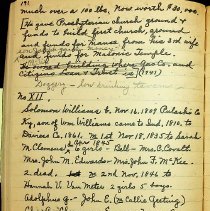 much over a 100 lbs, Now worth $20,000
He gave Presbyterian church ground &
funds to build first church, ground
and funds for Manse from his 3rd wife
Masonic Temple
He owned building where Gas Co. and
Citizens Loan & Trust is (1941)
Doggery - low drinking taverns
No XII.
Solomon Williams b. Nov. 16, 1809 Pulaski Co
Ky, son of Wm Williams came to Ind, 1810, to
Daviess Co, 1861, m 1st Nov 18, 1835 to Sarah
M. Clements 6 girls - Bell - Mrs. C. Covalt
Mrs. John M. Edwards - Mrs John F. McKee -
2 dead. m 2nd Nov. 1846 to
Hannah V. Van Meter 2 girls 5 boys.
Adolphus G - John E. (m Callie Geeting)